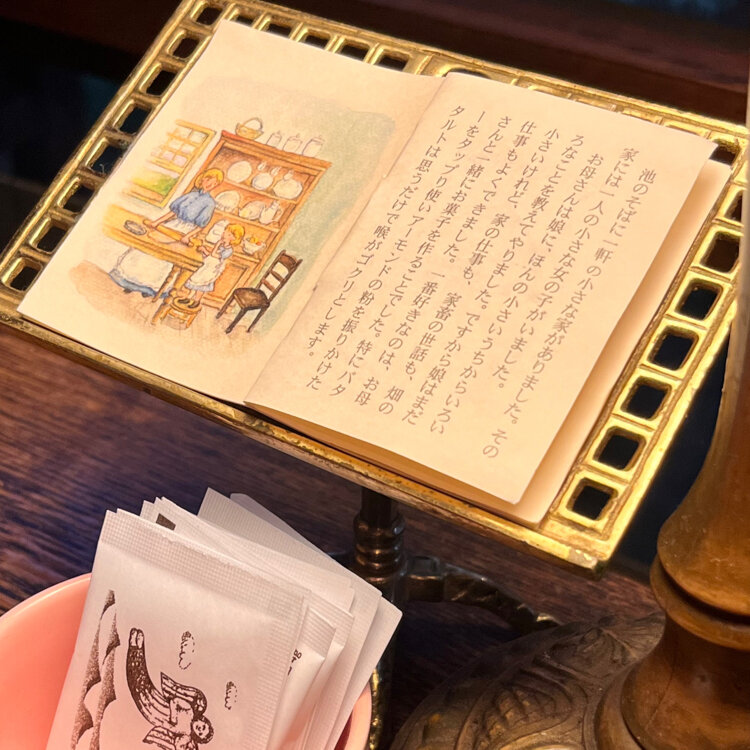 池のそばに一軒の小さな家がありました。その
家には一人の小さな女の子がいました。
お母さんは娘に、ほんの小さいうちからいろい
ろなことを教えてやりました。ですから娘はまだ
小さいけれど、家の仕事も、家畜の世話も、畑の
仕事もよくできました。一番好きなのは、お母
さんと一緒にお菓子を作ることでした。特にバタ
ーをタップリ使いアーモンドの粉を振りかけた
タルトは思うだけで喉がゴクリとします。